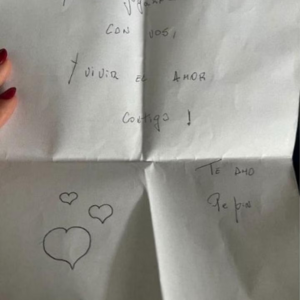 CON VOS,
Y VIVIR EL AMOR
Contigo !
TE AMO
Pepa